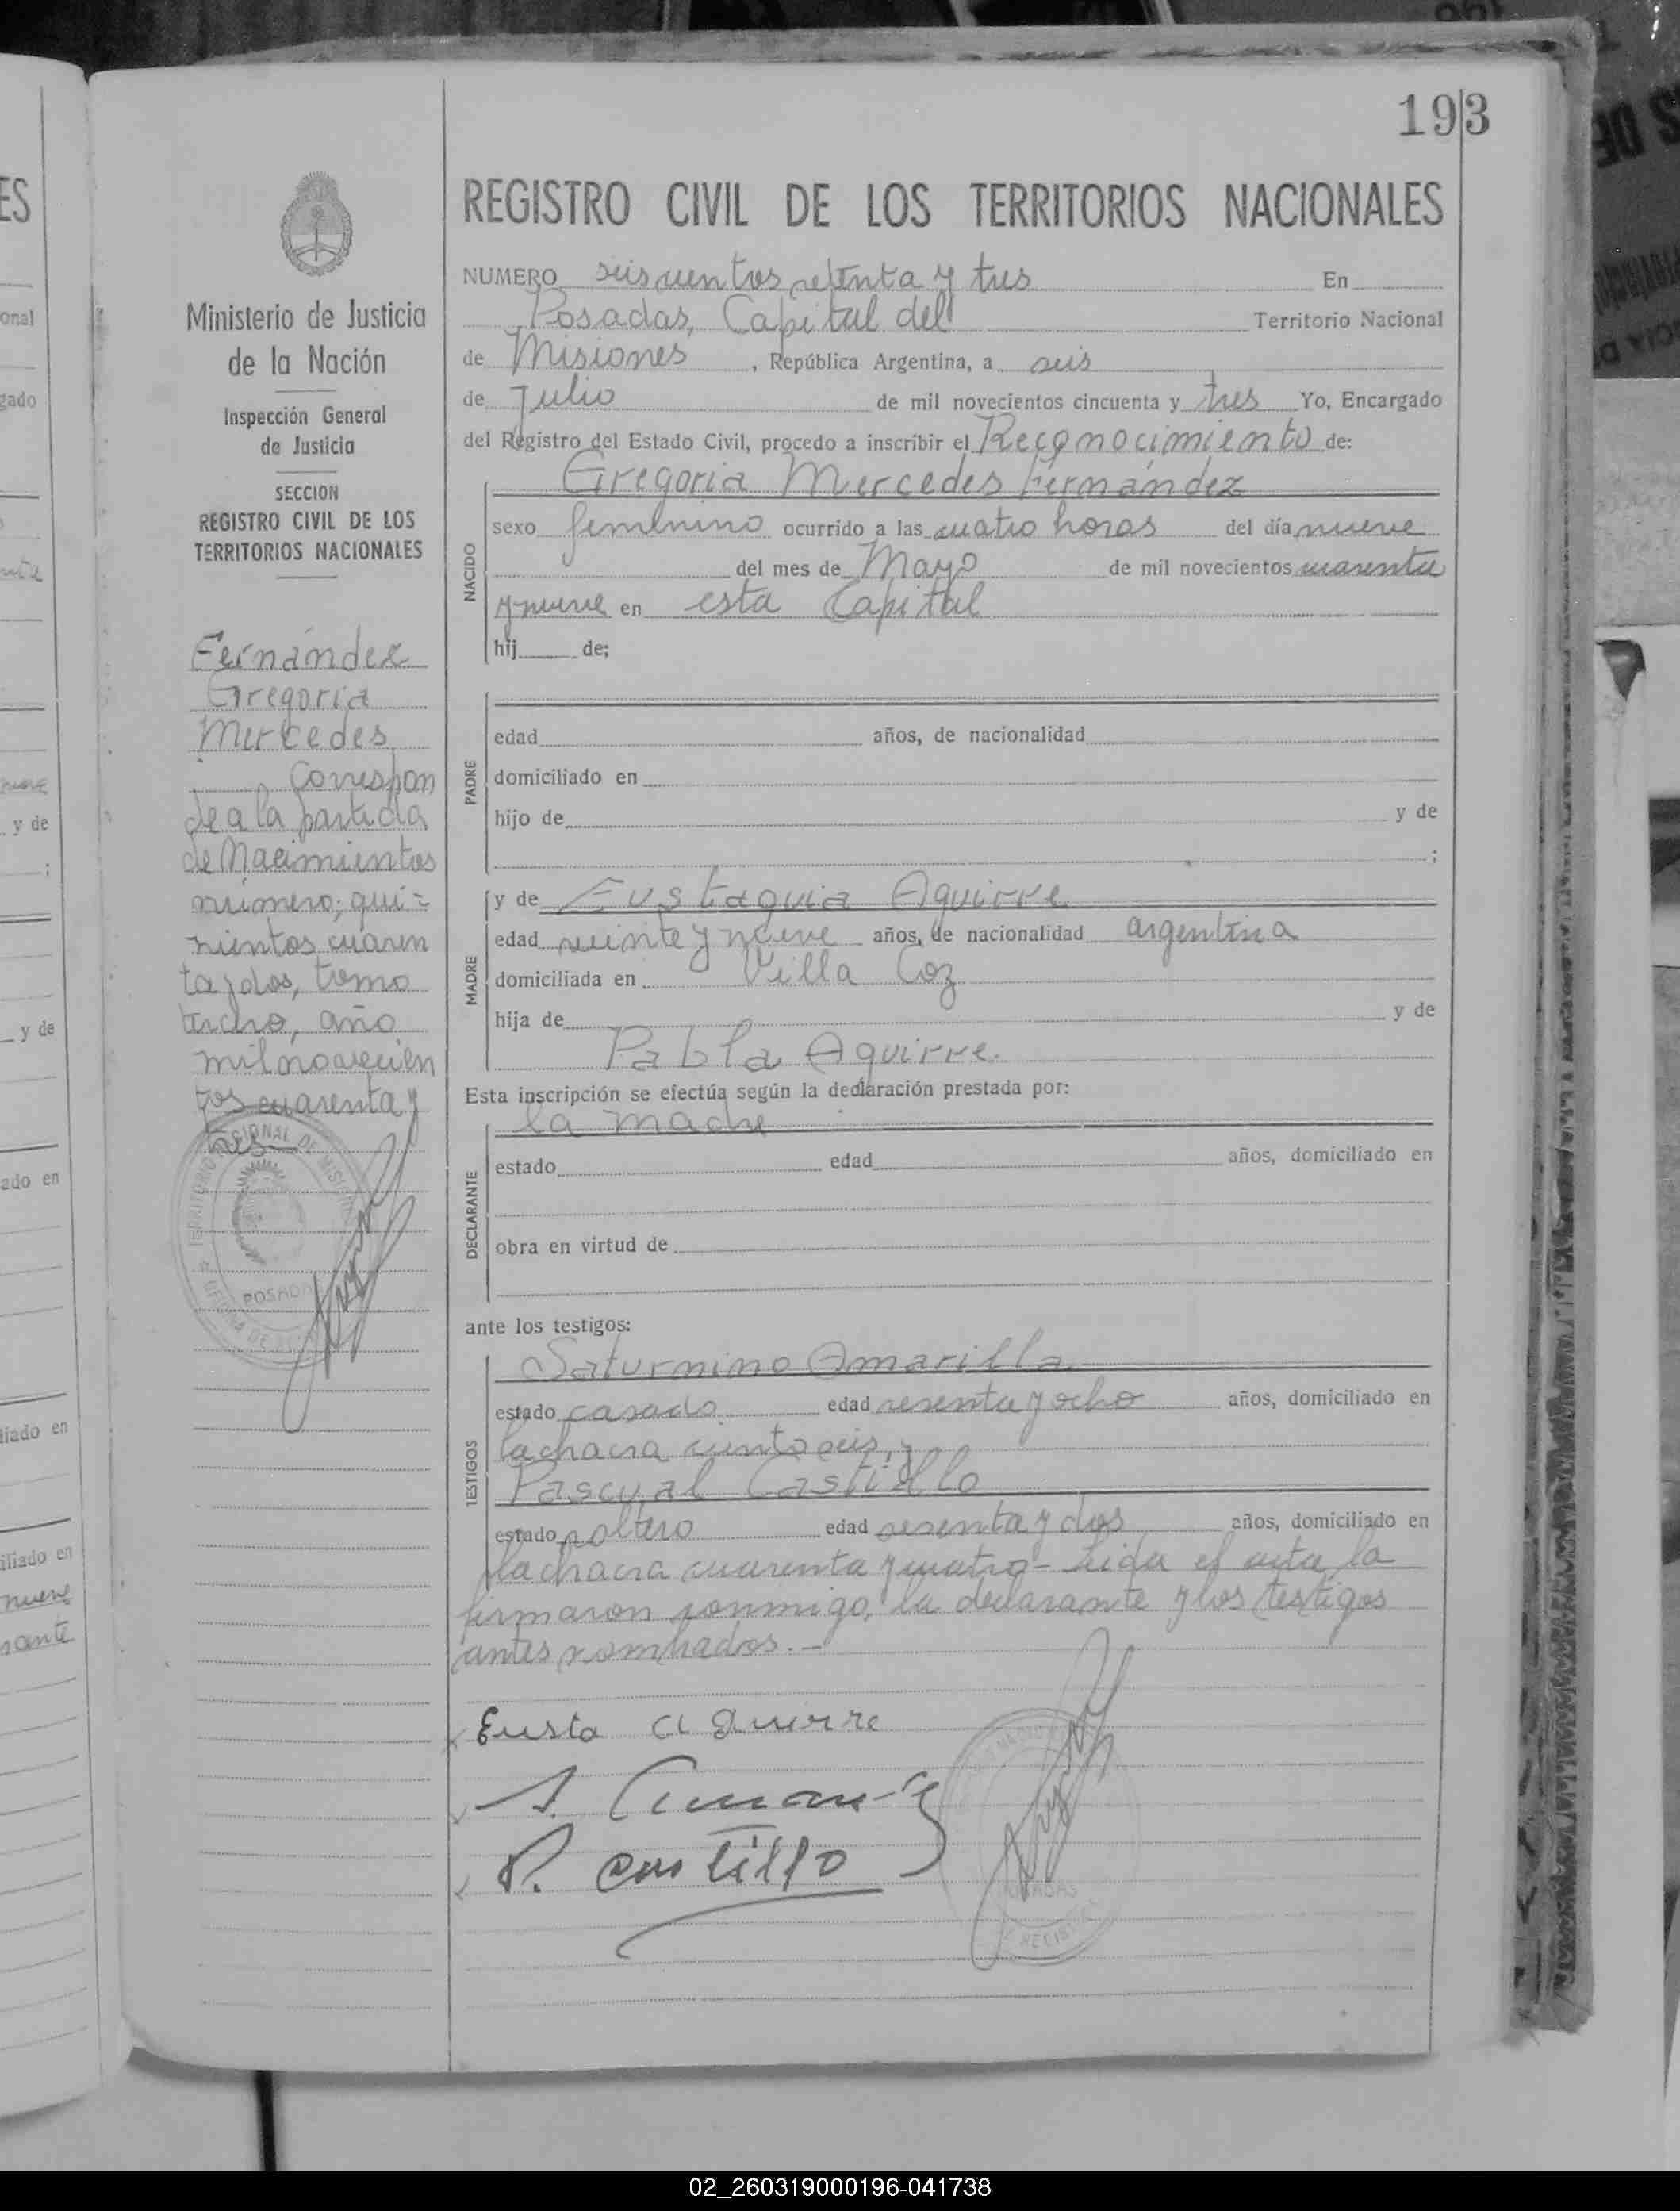 193
REGISTRO CIVIL DE LOS TERRITORIOS NACIONALES
NUMERO seiscientos setenta y tres En
Posadas, Capital del Territorio Nacional
de Misiones, República Argentina, a seis
de Julio de mil novecientos cincuenta y tres Yo, Encargado
del Registro del Estado Civil, procedo a inscribir el Reconocimiento de:
NACIDO
Gregoria Mercedes Fernández
sexo femenino ocurrido a las cuatro horas del día nueve
del mes de Mayo de mil novecientos cuarenta
y nueve en esta Capital
hij de;
PADRE
edad años, de nacionalidad
domiciliado en
hijo de y de
;
MADRE
y de Eustaquia Aguirre
edad veinte y nueve años, de nacionalidad argentina
domiciliada en Villa Coz
hija de y de
Pabla Aguirre.
Esta inscripción se efectúa según la declaración prestada por:
DECLARANTE
la madre
estado edad años, domiciliado en
obra en virtud de
ante los testigos:
TESTIGOS
Saturnino Amarilla
estado casado edad sesenta y ocho años, domiciliado en
la chacra ciento seis, y
Pascual Castillo
estado soltero edad sesenta y dos años, domiciliado en
la chacra cuarenta y cuatro - Leida el acta, la
firmaron conmigo, la declarante y los testigos
antes nombrados. -
Eusta aguirre
P. castillo
Ministerio de Justicia
de la Nación
Inspección General
de Justicia
SECCION
REGISTRO CIVIL DE LOS
TERRITORIOS NACIONALES
Fernández
Gregoria
Mercedes
Correspon
de a la partida
de Nacimientos
número, qui-
nientos cuaren
ta y dos, tomo
año
mil novecien
tos cuarenta y
TERRITORIO NACIONAL DE MISIONES
POSADAS
POSADAS
ES
onal
gado
nueve
y de
;
y de
ado en
iliado en
iliado en
nueve
rante
02_260319000196-041738